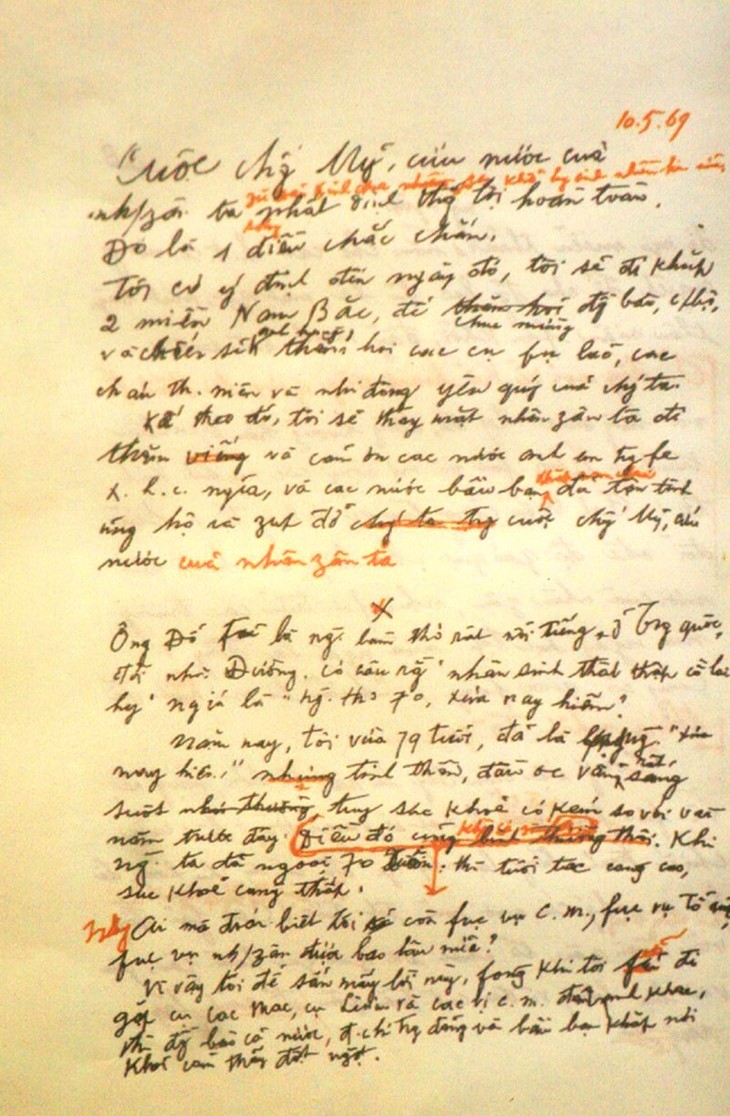 10.5.69
Cuộc chg' Mỹ, cứu nước của
nh/zân ta zù fải kinh qua nhiều khó hy sinh nhiều hơn nữa
nhất định thg' lợi hoàn toàn.
Đó là 1 điều chắc chắn.
Tôi có ý định đến ngày đó, tôi sẽ đi khắp
2 miền Nam Bắc, để thăm hỏi chúc mừng đg bào, c/bộ,
và chiến sĩ anh hùng, thăm hỏi các cụ fụ lão, các
cháu th. niên và nhi đồng yêu quý của chg' ta.
Kế theo đó, tôi sẽ thay mặt nhân zân ta đi
thăm viếng và cám ơn các nước anh em trg fe
x. h. c. ngĩa, và các nước bầu bạn đã tận tình
ủng hộ và zúp đỡ chg' ta trg cuộc chg' Mỹ, cứu
nước của nhân zân ta
X
Ông Đỗ Fủ là ng. làm thơ rất nổi tiếng ở Trg quốc,
đời nhà Đường. Có câu rg "nhân sinh thất thập cổ lai
hy" ngĩa là "ng. thọ 70, xưa nay hiếm".
Năm nay, tôi vừa 79 tuổi, đã là lớp ng. "xưa
nay hiếm" nhưng tinh thần, đầu óc vẫn rất sáng
suốt như thường, tuy sức khoẻ có kém so với vài
năm trước đây. Điều đó cũng bình thường thôi. Khi
ng. ta đã ngoài 70 xuân, thì tuổi tác càng cao,
sức khoẻ càng thấp.
Nhg Ai mà đoán biết tôi sẽ còn fục vụ c. m., fục vụ Tổ quốc,
fục vụ nh/zân được bao lâu nữa?
Vì vậy tôi để sẵn mấy lời này, fòng khi tôi fải đi
gặp cụ Các Mác, cụ Lênin và các vị c. m. đàn anh khác,
thì đg bào cả nước, đ. chí trg đảng và bầu bạn khắp nơi
khỏi cảm thấy đột ngột.